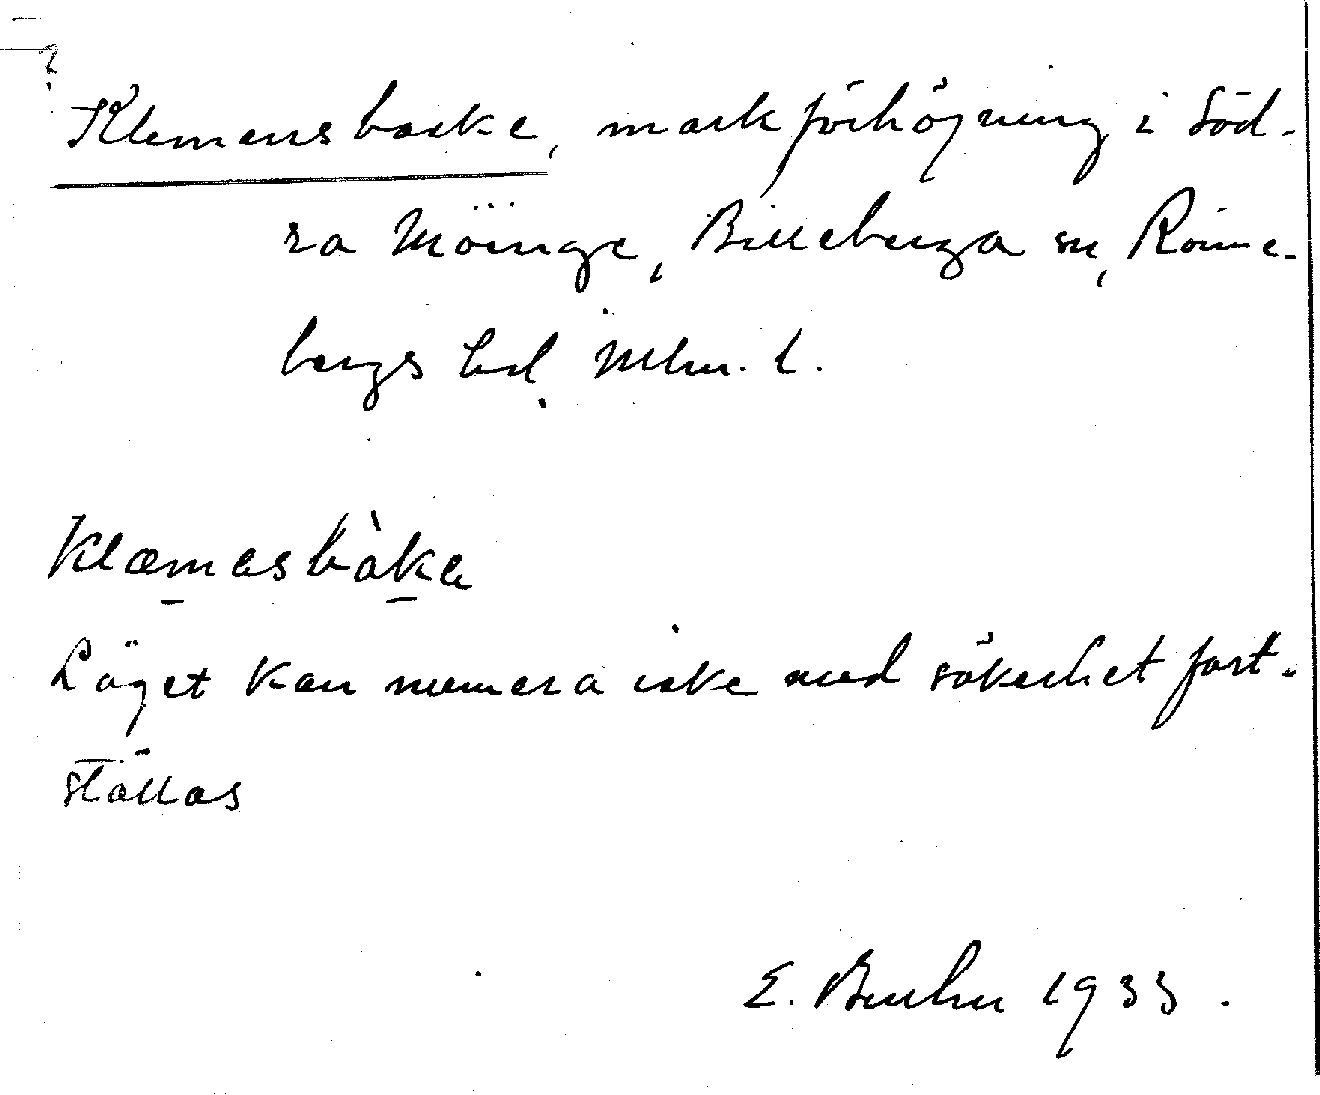 ?
Klemensbacke, markförhöjning i Söd-
ra Möinge, Billeberga sn, Rönne-
bergs hd, Mlm. l.
Klæmasbàka
Läget kan numera icke med säkerhet fast-
ställas
E. 1933.